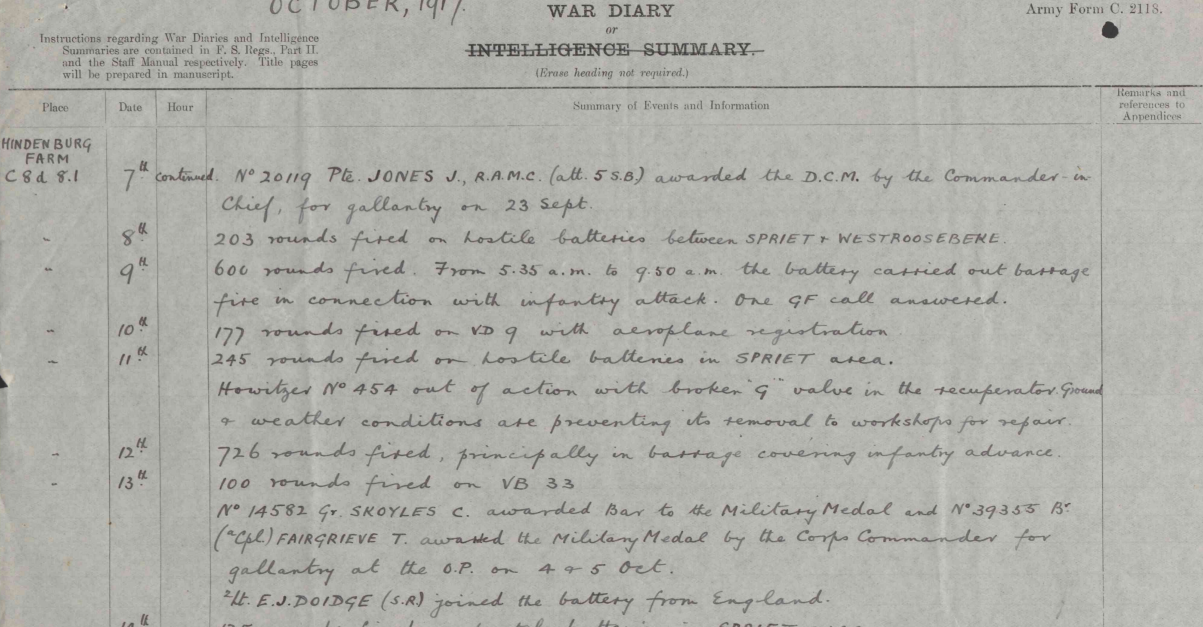 OCTOBER, 1917.
WAR DIARY
or
INTELLIGENCE SUMMARY.
(Erase heading not required.)
Army Form C. 2118.
Instructions regarding War Diaries and Intelligence
Summaries are contained in F. S. Regs., Part II.
and the Staff Manual respectively. Title pages
will be prepared in manuscript.
Place Date Hour Summary of Events and Information Remarks and references to Appendices
HINDENBURG
FARM
C 8 d 8.1 7th continued. No 20119 Pte. JONES J., R.A.M.C. (att. 5 S.B.) awarded the D.C.M. by the Commander-in-
Chief, for gallantry on 23 Sept.
" 8th 203 rounds fired on hostile batteries between SPRIET & WESTROOSEBEKE.
" 9th 600 rounds fired. From 5.35 a.m. to 9.50 a.m. the battery carried out barrage
fire in connection with infantry attack. One GF call answered.
" 10th 177 rounds fired on VD 9 with aeroplane registration
" 11th 245 rounds fired on hostile batteries in SPRIET area.
Howitzer No 454 out of action with broken "G" valve in the recuperator. Ground
& weather conditions are preventing its removal to workshops for repair.
" 12th 726 rounds fired, principally in barrage covering infantry advance.
" 13th 100 rounds fired on VB 33
No 14582 Gr. SKOYLES C. awarded Bar to the Military Medal and No 39355 Br
(aCpl) FAIRGRIEVE T. awarded the Military Medal by the Corps Commander for
gallantry at the O.P. on 4 & 5 Oct.
2Lt. E.J. DOIDGE (S.R.) joined the battery from England.